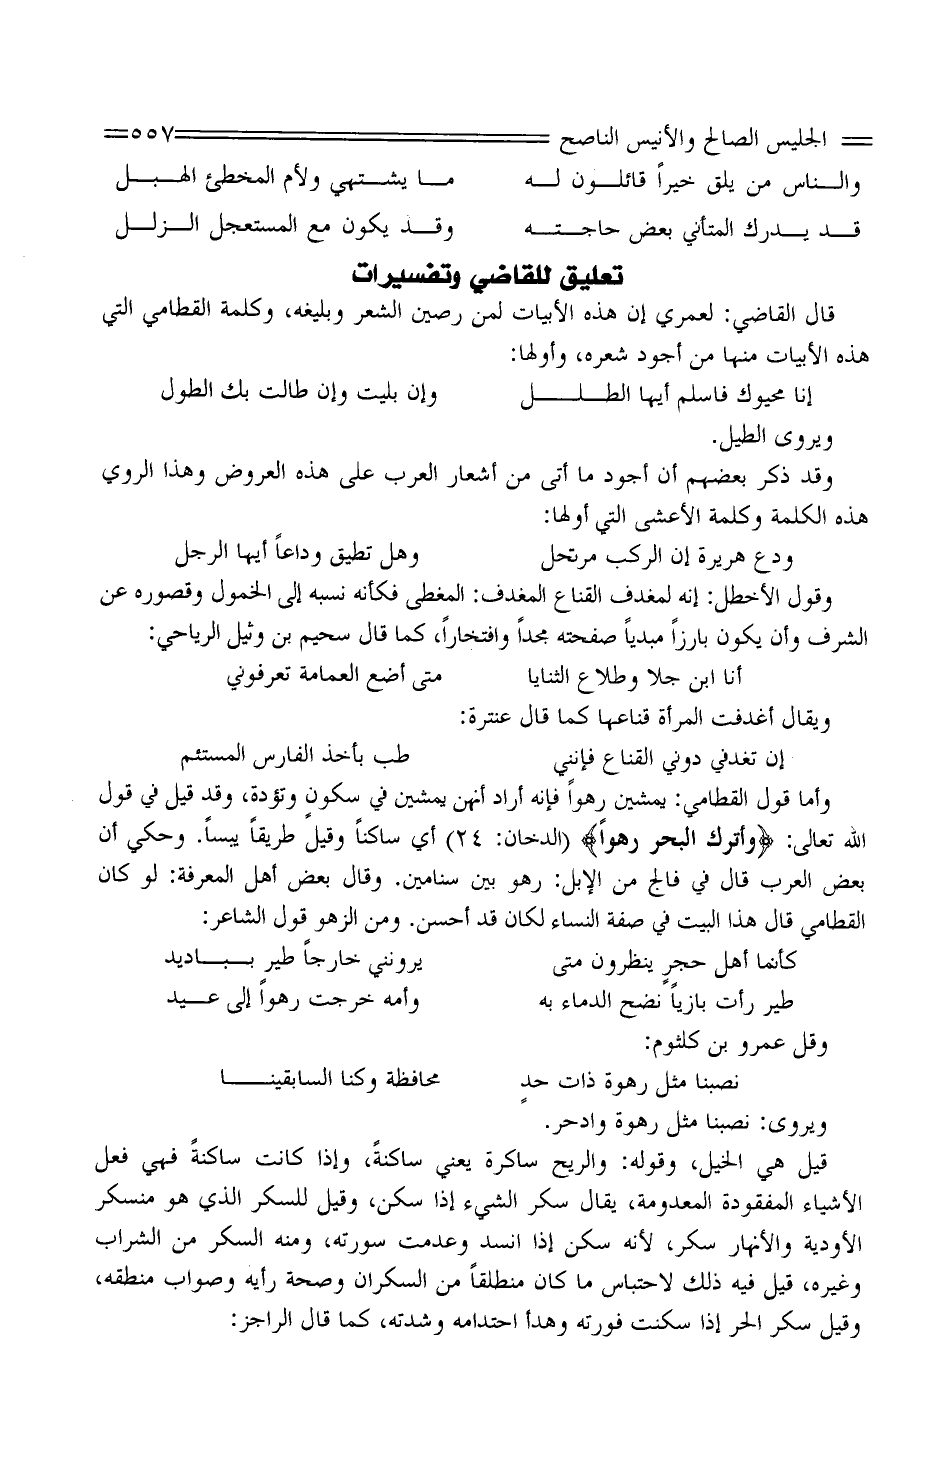 الجليس الصالح والأنيس الناصح ٥٥٧
والـــناس من يلق خيراً قائلـــون لـــه مـــا يشـــتهي ولأم المخطئ الهـــبـــل
قـــد يـــدرك المتأني بعض حاجـــتـــه وقـــد يكون مع المستعجل الـــزلـــل
تعليق للقاضي وتفسيرات
قال القاضي: لعمري إن هذه الأبيات لمن رصين الشعر وبليغه، وكلمة القطامي التي
هذه الأبيات منها من أجود شعره، وأولها:
إنا محيوك فاسلم أيها الطلـــــل وإن بليت وإن طالت بك الطول
ويروى الطيل.
وقد ذكر بعضهم أن أجود ما أتى من أشعار العرب على هذه العروض وهذا الروي
هذه الكلمة وكلمة الأعشى التي أولها:
ودع هريرة إن الركب مرتحل وهل تطيق وداعاً أيها الرجل
وقول الأخطل: إنه لمغدف القناع المغدف: المغطى فكأنه نسبه إلى الخمول وقصوره عن
الشرف وأن يكون بارزاً مبدياً صفحته مجداً وافتخاراً، كما قال سحيم بن وثيل الرياحي:
أنا ابن جلا وطلاع الثنايا متى أضع العمامة تعرفوني
ويقال أغدفت المرأة قناعها كما قال عنترة:
إن تغدفي دوني القناع فإنني طب بأخذ الفارس المستئم
وأما قول القطامي: يمشين رهواً فإنه أراد أنهن يمشين في سكونٍ وتؤدة، وقد قيل في قول
الله تعالى: ﴿وأترك البحر رهواً﴾ (الدخان: ٢٤) أي ساكناً وقيل طريقاً يبساً. وحكي أن
بعض العرب قال في فالج من الإبل: رهو بين سنامين. وقال بعض أهل المعرفة: لو كان
القطامي قال هذا البيت في صفة النساء لكان قد أحسن. ومن الزهو قول الشاعر:
كأنما أهل حجرٍ ينظرون متى يرونني خارجاً طير يـــبـــاديد
طير رأت بازياً نضح الدماء به وأمه خرجت رهواً إلى عـــيد
وقل عمرو بن كلثوم:
نصبنا مثل رهوة ذات حدٍ محافظة وكنا السابقينـــا
ويروى: نصبنا مثل رهوة وادحر.
قيل هي الخيل، وقوله: والريح ساكرة يعني ساكنةً، وإذا كانت ساكنةً فهي فعل
الأشياء المفقودة المعدومة، يقال سكر الشيء إذا سكن، وقيل للسكر الذي هو منسكر
الأودية والأنهار سكر، لأنه سكن إذا انسد وعدمت سورته، ومنه السكر من الشراب
وغيره، قيل فيه ذلك لاحتباس ما كان منطلقاً من السكران وصحة رأيه وصواب منطقه،
وقيل سكر الحر إذا سكنت فورته وهدأ احتدامه وشدته، كما قال الراجز: